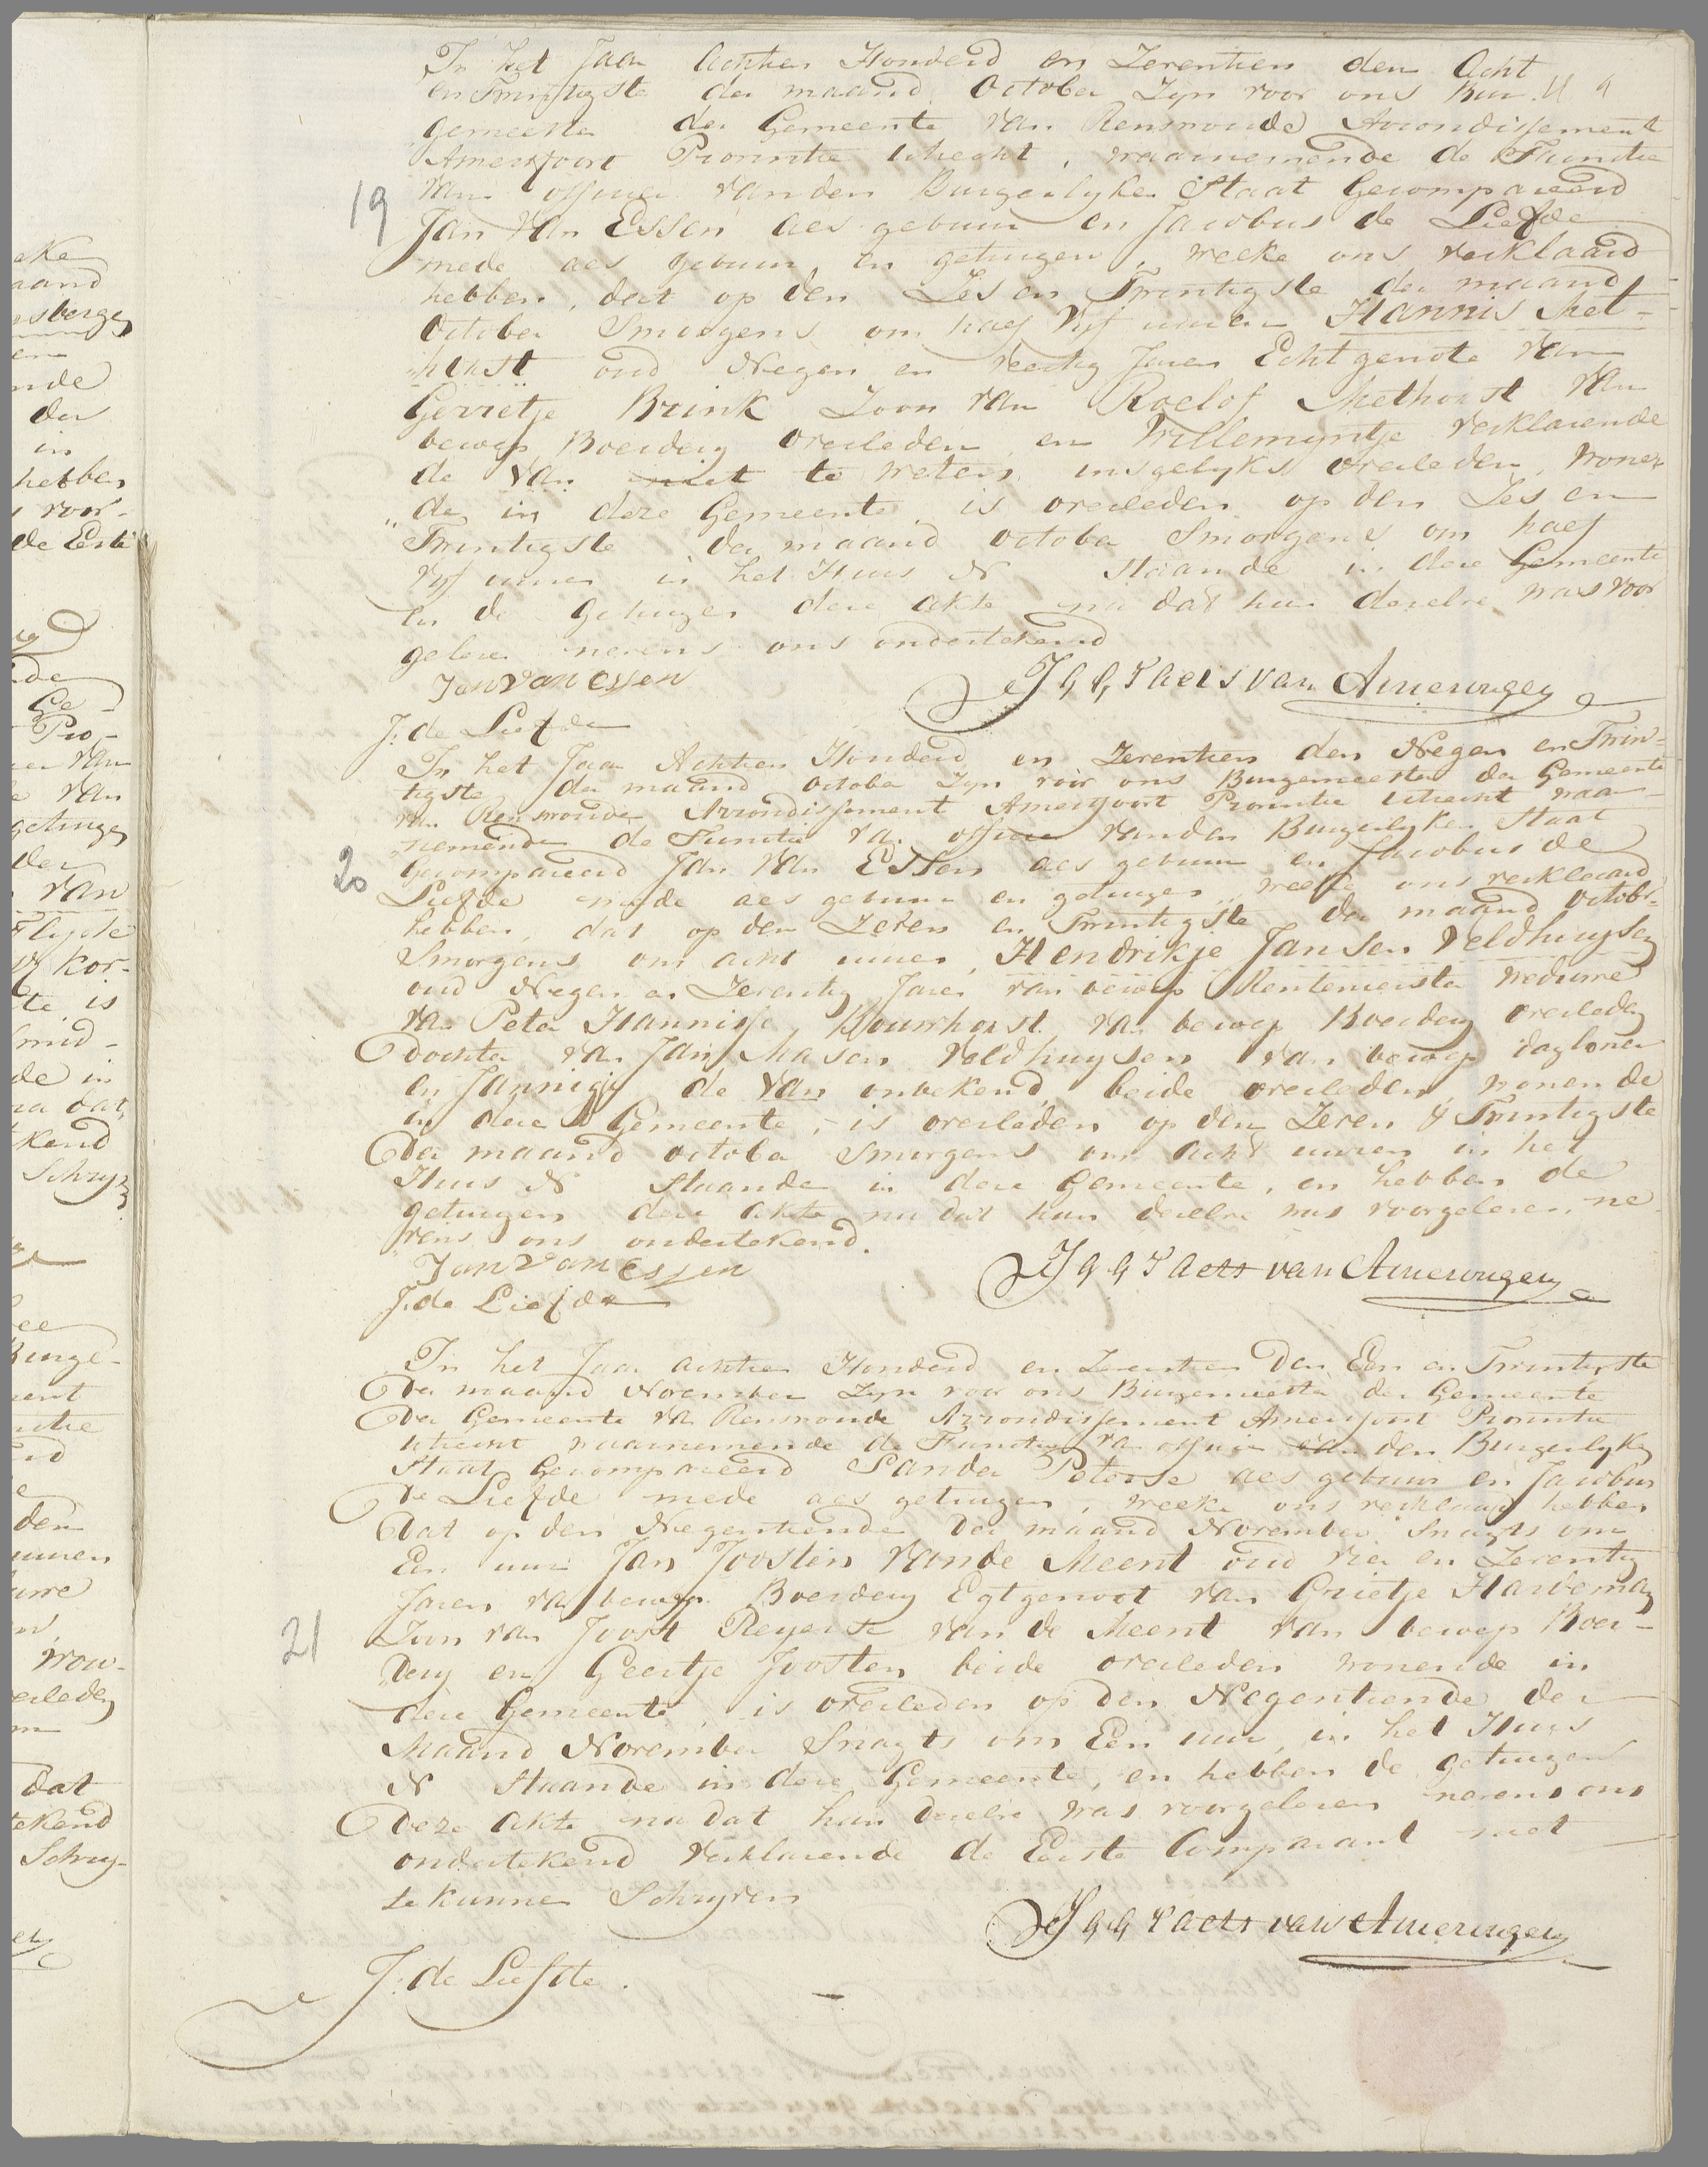 In het Jaar Achtien Honderd en Zeventien den Acht
en Twintigste der maand October Zyn voor ons Bur
gemeester der Gemeente van Renswoude Arrondissement
Amersfoort Provintie Utrecht, waarnemende de Functie
van officier van den Burgerlyken Staat Gecompareerd
19
Jan Van Essen als gebuur en Jacobus de Liefde
mede als gebuur en getuigen, welke ons verklaard
hebben, dat op den Zes en Twintigste der maand
October Smorgens om half vyf uuren Hannis Met-
horst oud Negen en veertig Jaren Echtgenote van
Gerretje Brink Zoon van Roelof Methorst van
beroep Boerdery overleden en Willemyntje verklarende
de Van niet te weten insgelyks overleden, wonen
„de in deze Gemeente is overleden op den Zes en
Twintigste der maand October Smorgens om half
vyf uuren in het Huis N Staande in deze Gemeente
en de getuigen deze akte na dat hun dezelve was voor
gelezen nevens ons ondertekend
Jan Van Essen
J G G Taets van Amerongen
J: de Liefde
In het Jaar Achtien Honderd en Zeventien den Negen en Twin-
tigste der maand October Zyn voor ons Burgemeester der Gemeente
van Renswoude Arrondissement Amersfoort Provintie Utrecht waar
„nemende de Functie van officier van den Burgerlyken Staat
20
Gecompareerd Jan Van Essen als gebuur en Jacobus de
Liefde mede als gebuur en getuigen, welke ons verklaard
hebben, dat op den Zeven en Twintigste der maand Octobr-
Smorgens om acht uuren, Hendrikje Jansen Veldhuysen
oud Negen en Zeventig Jaren van beroep Rentenierster weduwe
van Peter Hannisse Bouwhorst van beroep Boerdery overleden
dochter van Jan Maasen Veldhuysen van beroep dagloner
en Jannigje de Van onbekend, beide overleden, wonende
in deze Gemeente, is overleden op den Zeven & Twintigste
der maand October Smorgens om acht uuren in het
Huis N Staande in deze Gemeente, en hebben de
getuigen deze akte na dat hun dezelve was voorgelezen, ne
„vens ons ondertekend.
Jan Van Essen
J G G Taets van Amerongen
J: de Liefde
In het Jaar achtien Honderd en Zeventien den Een en Twintigste
der maand November Zyn voor ons Burgemeester der Gemeente
der Gemeente van Renswoude Arrondissement Amersfoort Provintie
Utrecht waarnemende de Functie van officier van den Burgerlyken
Staat Gecompareerd Sander Peterse als gebuur en Jacobus
de Liefde mede als getuigen, welke ons verklaard hebben
dat op den Negentiende der maand November Snagts om
Een uur Jan Joosten van de Meent oud vier en Zeventig
Jaren van beroep Boerdery Egtgenoot van Grietje Hardeman
21
Zoon van Joost Reyerse van de Meent van beroep Boer-
„dery en Geertje Joosten beide overleden wonende in
deze Gemeente, is overleden op den Negentiende der
Maand November Snagts om Een uur, in het Huys
N Staande in deze Gemeente, en hebben de getuigen
deze akte na dat hun dezelve was voorgelezen nevens ons
ondertekend Verklarende de Eerste Comparant niet
te kunnen Schryven
J G G Taets van Amerongen
J: de Liefde.